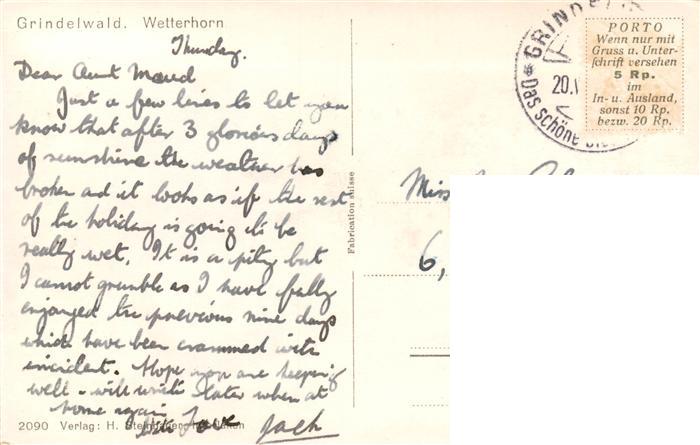 Grindelwald. Wetterhorn
Thursday.
Dear Aunt Maud
Just a few lines to let you
know that after 3 glorious days
of sunshine the weather has
broken and it looks as if the rest
of the holiday is going to be
really wet. It is a pity but
I cannot grumble as I have fully
enjoyed the previous nine days
which have been crammed with
incident. Hope you are keeping
well - will write later when at
home again
With Love Jack
2090 Verlag: H.
Fabrication suisse
GRINDEL
20.
Das schöne
PORTO
Wenn nur mit
Gruss u. Unter-
schrift versehen
5 Rp.
im
In- u. Ausland,
sonst 10 Rp.
bezw. 20 Rp.
Miss
6,